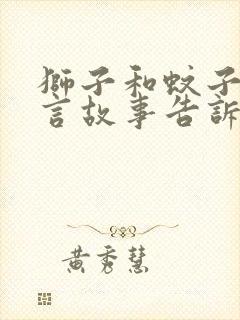 獅子和蚊子
言故事告訴
黃秀慧